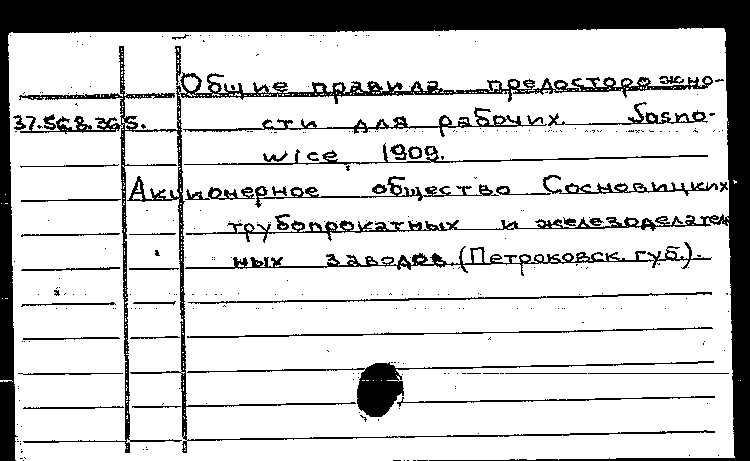 Общие правила предосторожно-
37.568.365. сти для рабочих. Sosno-
wice, 1909.
Акционерное общество Сосновицких
трубопрокатных и железоделатель
ных заводов. (Петроковск. губ.).